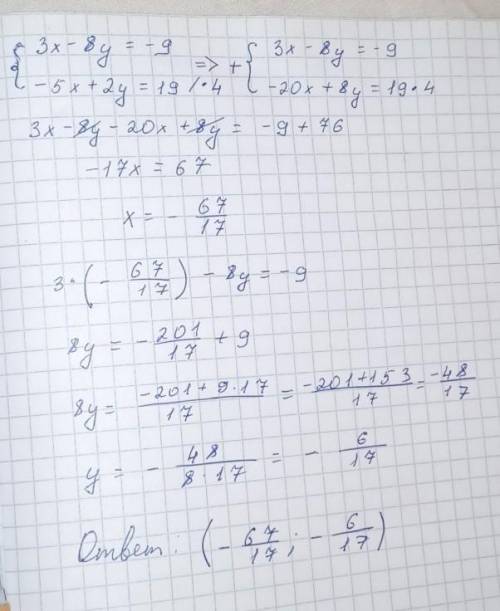 { 3x - 8y = -9 => + { 3x - 8y = -9
-5x + 2y = 19 /·4 -20x + 8y = 19·4
3x - 8y - 20x + 8y = -9 + 76
-17x = 67
x = - 67/17
3·(- 67/17) - 8y = -9
8y = - 201/17 + 9
8y = (-201 + 9·17)/17 = (-201+153)/17 = -48/17
y = - 48/(8·17) = - 6/17
Ответ: (- 67/17; - 6/17)